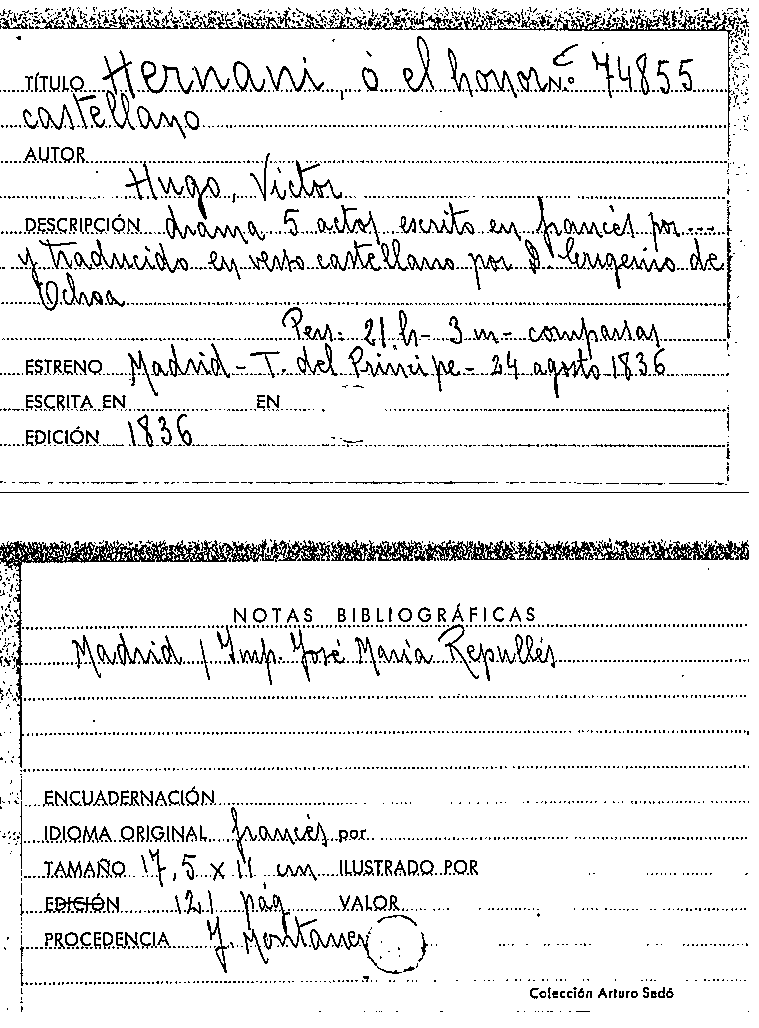 TÍTULO Hernani, ò el honor N.º C 74855
castellano
AUTOR
Hugo, Victor
DESCRIPCIÓN drama 5 actos escrito en francés por ...
y traducido en verso castellano por D. Eugenio de
Ochoa
Pers: 21 h - 3 m - comparsas
ESTRENO Madrid - T. del Principe - 24 agosto 1836
ESCRITA EN EN
EDICIÓN 1836
NOTAS BIBLIOGRÁFICAS
Madrid / Imp. José María Repullés
ENCUADERNACIÓN
IDIOMA ORIGINAL francés por
TAMAÑO 17,5 x 11 cm ILUSTRADO POR
EDICIÓN 121 pág VALOR
PROCEDENCIA J. Montaner
Colección Arturo Sedó